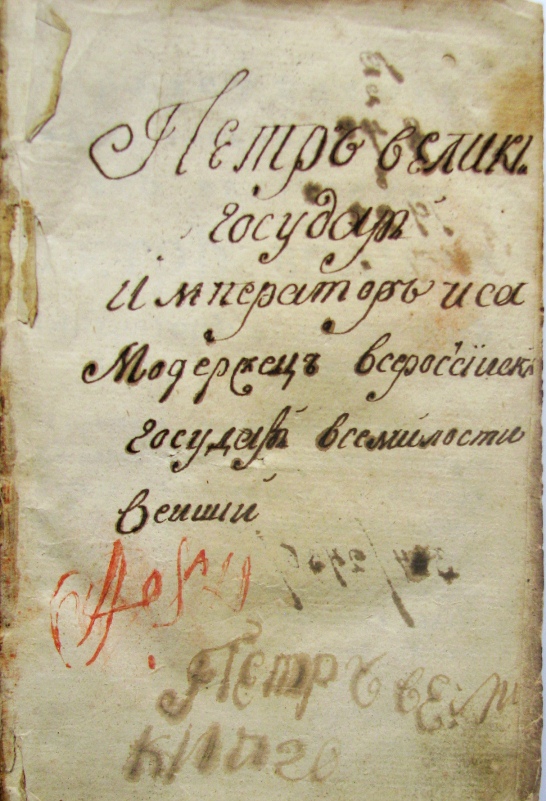 Петръ велики
государь
императоръ иса
модержецъ всеросїиски
государь всемилости
веиший
Петръ вели